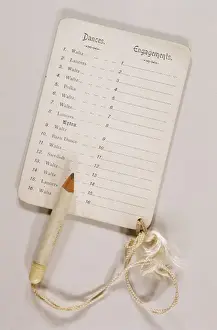 Dances. Engagements.
1. Waltz 1.
2. Lancers 2.
3. Waltz 3.
4. Waltz 4.
5. Polka 5.
6. Waltz 6.
7. Waltz 7.
8. Lancers 8.
Extra
9. Waltz 9.
10. Barn Dance 10.
11. Waltz 11.
12. 12.
13. Waltz 13.
14. Waltz 14.
15. Lancers 15.
16. Waltz 16.